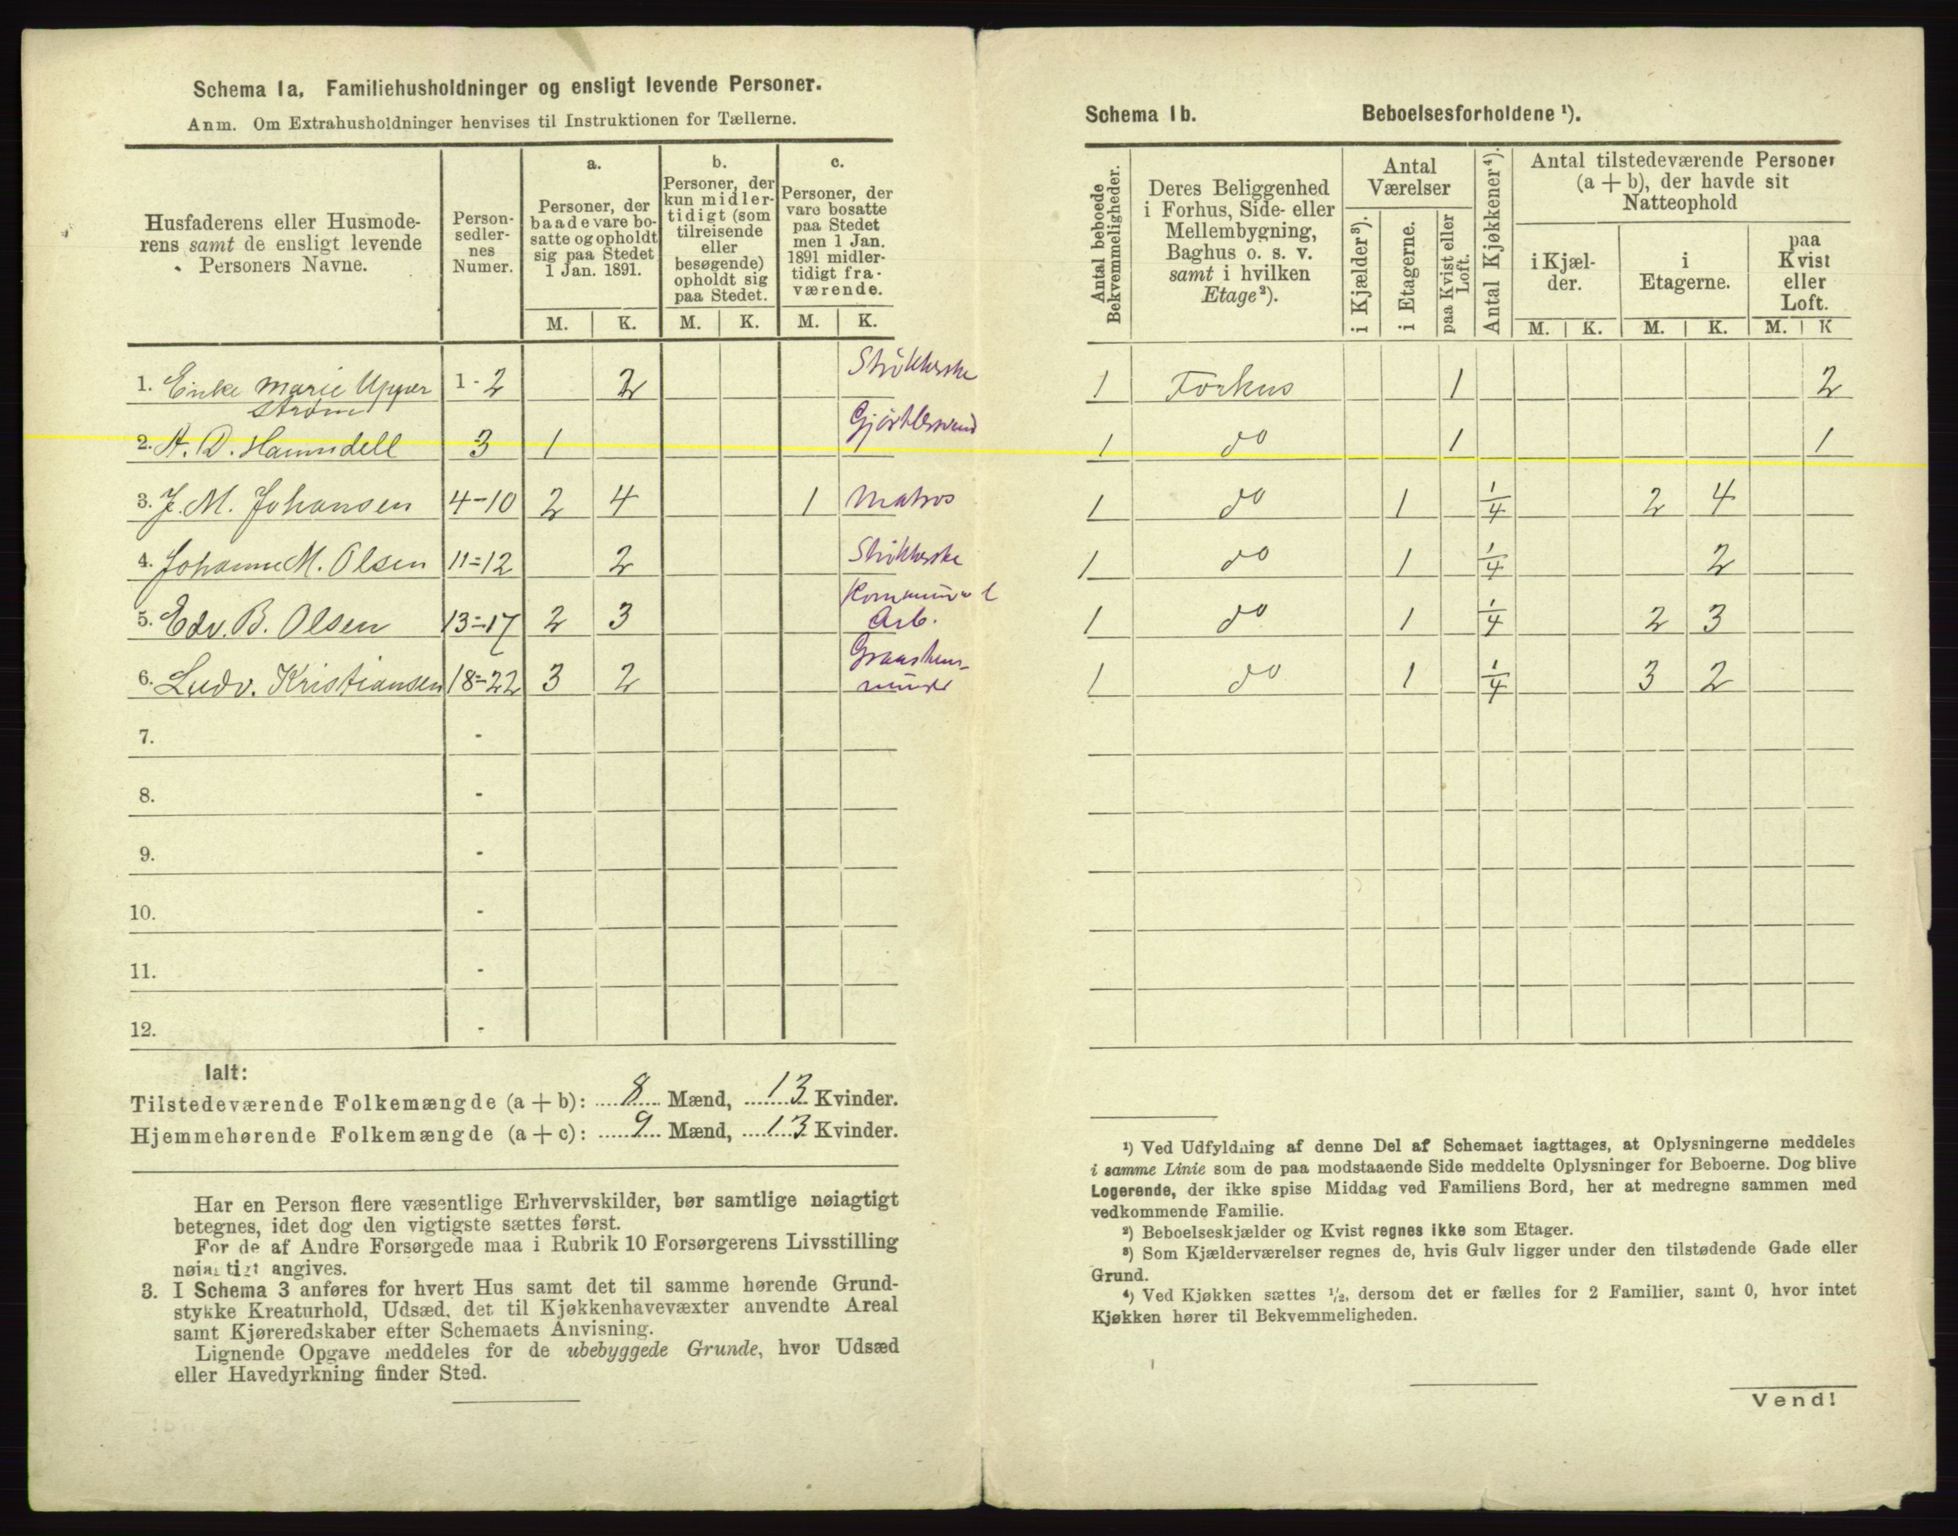 Schema 1a. Familiehusholdninger og ensligt levende Personer.
Anm. Om Extrahusholdninger henvises til Instruktionen for Tællerne.
Husfaderens eller Husmode-
rens samt de ensligt levende
Personers Navne.
Person-
sedler-
nes
Numer.
a.
Personer, der
baade vare bo-
satte og opholdt
sig paa Stedet
1 Jan. 1891.
b.
Personer, der
kun midler-
tidigt (som
tilreisende
eller
besøgende)
opholdt sig
paa Stedet.
c.
Personer, der
vare bosatte
paa Stedet
men 1 Jan.
1891 midler-
tidigt fra-
værende.
M. K. M. K. M. K.
1. Enke Marie Upper 1-2 2 Strikkerske
strøm
2. A. D. Hamndell 3 1
3. J. M. Johansen 4-10 2 4 1 Matros
4. Johanne M. Olsen 11=12 2 Strikkerske
5. Edv. B. Olsen 13=17 2 3 Kommunal
Arb.
6. Ludv. Kristiansen 18=22 3 2
7. -
8. -
9. -
10. -
11. -
12. -
Ialt:
Tilstedeværende Folkemængde (a + b): 8 Mænd, 13 Kvinder.
Hjemmehørende Folkemængde (a + c): 9 Mænd, 13 Kvinder.
Har en Person flere væsentlige Erhvervskilder, bør samtlige nøiagtigt
betegnes, idet dog den vigtigste sættes først.
For de af Andre Forsørgede maa i Rubrik 10 Forsørgerens Livsstilling
nøiagtigt angives.
3. I Schema 3 anføres for hvert Hus samt det til samme hørende Grund-
stykke Kreaturhold, Udsæd, det til Kjøkkenhavevæxter anvendte Areal
samt Kjøreredskaber efter Schemaets Anvisning.
Lignende Opgave meddeles for de ubebyggede Grunde, hvor Udsæd
eller Havedyrkning finder Sted.
Schema 1b. Beboelsesforholdene ¹).
Antal beboede
Bekvemmeligheder.
Deres Beliggenhed
i Forhus, Side- eller
Mellembygning,
Baghus o. s. v.
samt i hvilken
Etage²).
Antal
Værelser
i Kjælder³).
i Etagerne.
paa Kvist eller
Loft.
Antal Kjøkkener⁴).
Antal tilstedeværende Personer
(a + b), der havde sit
Natteophold
i Kjæl-
der.
i
Etagerne.
paa
Kvist
eller
Loft.
M. K. M. K. M. K
1 Forhus 1 2
1 do 1 1
1 do 1 1/4 2 4
1 do 1 1/4 2
1 do 1 1/4 2 3
1 do 1 1/4 3 2
¹) Ved Udfyldning af denne Del af Schemaet iagttages, at Oplysningerne meddeles
i samme Linie som de paa modstaaende Side meddelte Oplysninger for Beboerne. Dog blive
Logerende, der ikke spise Middag ved Familiens Bord, her at medregne sammen med
vedkommende Familie.
²) Beboelseskjælder og Kvist regnes ikke som Etager.
³) Som Kjælderværelser regnes de, hvis Gulv ligger under den tilstødende Gade eller
Grund.
⁴) Ved Kjøkken sættes ½, dersom det er fælles for 2 Familier, samt 0, hvor intet
Kjøkken hører til Bekvemmeligheden.
Vend!